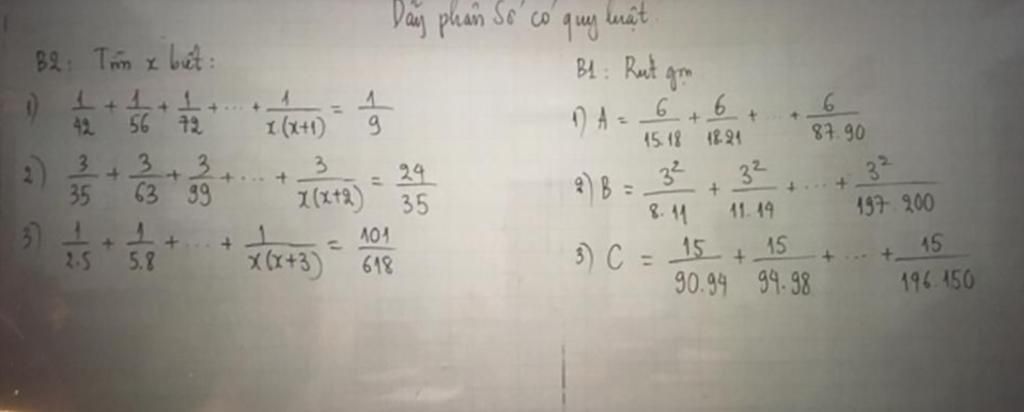 Dãy phân số có quy luật
B2: Tìm x biết:
1) 1/42 + 1/56 + 1/72 + ... + 1/x.(x+1) = 1/9
2) 3/35 + 3/63 + 3/99 + ... + 3/x(x+2) = 24/35
3) 1/2.5 + 1/5.8 + ... + 1/x(x+3) = 101/618
B1: Rút gọn
1) A = 6/15.18 + 6/18.21 + ... + 6/87.90
2) B = 3²/8.11 + 3²/11.14 + ... + 3²/197.200
3) C = 15/90.94 + 15/94.98 + ... + 15/146.150